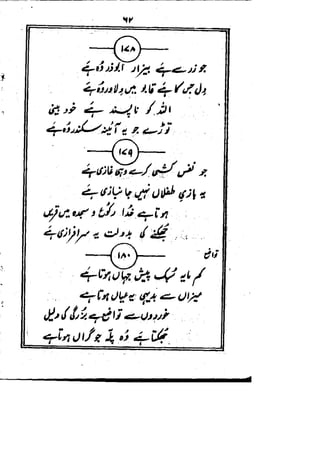 ۶۲
۱۷۸
جو زر سے ہے بیزار ابوذر وہ ہے
دل جس کا ہے قابو میں دلاور وہ ہے
اللہ کو ناپسند ہے خود بینی
توڑے جو یہ آئینہ سکندر وہ ہے
۱۷۹
جو نفس کشی کرے وہی غازی ہے
یہ بازیِ طفلاں نہیں جانبازی ہے
ہوتا ہے خدا رکوع و سجدہ میں قریں
جھکنے کی بدولت یہ سرافرازی ہے
۱۸۰
تواضع
کم مایہ سبک پیش جہاں ہوتا ہے
میزاں سے بدیہی یہ عیاں ہوتا ہے
خوردوں سے تواضع ہے بزرگی کی دلیل
جھکتا ہے وہ پلہ جو گراں ہوتا ہے